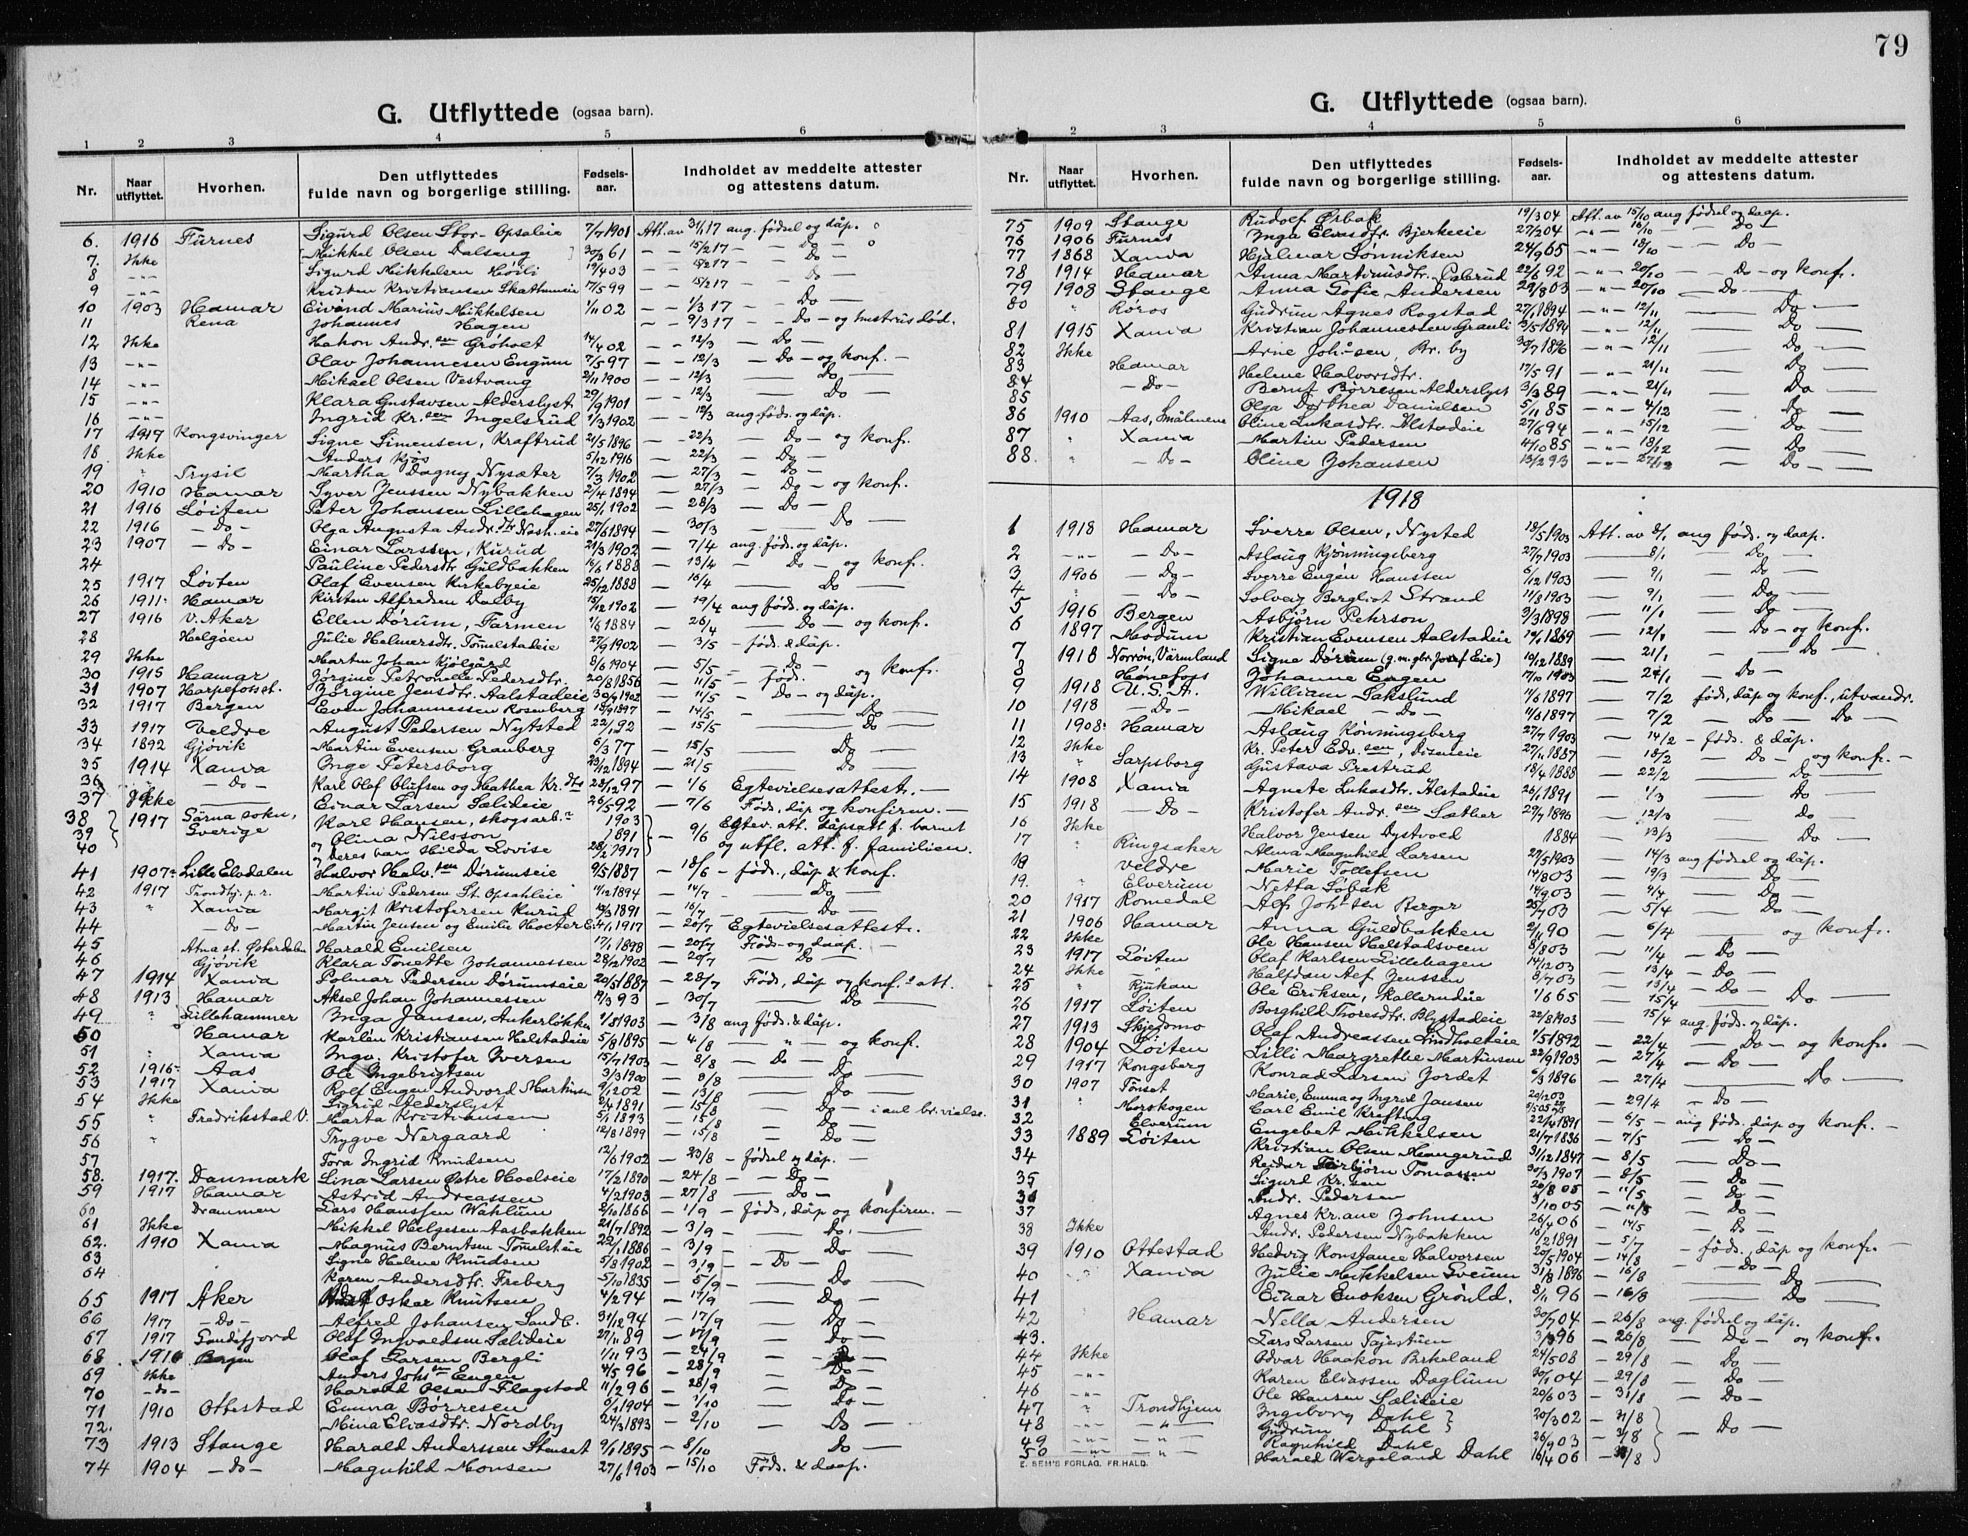 79
G. Utflyttede (ogsaa barn).
1 2 3 4 5 6
Nr. Naar utflyttet. Hvorhen. Den utflyttedes fulde navn og borgerlige stilling. Fødsels-aar. Indholdet av meddelte attester og attestens datum.
6. 1916 Furnes Sigurd Olsen Stor-Opsaleie 7/7 1901 Att. av 31/1 17 ang. fødsel og dåp.
7. Ikke Mikkel Olsen Dalseng 30/3 61 — — 15/2 17 — Do —
8 -"- Sigurd Mikkelsen Høili — — 15/2 17 — Do —
9 -"- Kristen Kristiansen 17/5 99 — — 15/2 17
10 1903 Hamar Eivind Marius Mikkelsen 1/11 02 — — 1/3 17 — Do —
11 Rena Johannes Hagen — — 9/3 17 — Do — og
12 Ikke Hakon Andr.sen Grøholt 14/4 02 — — 12/3 — Do —
13 -"- Olav Johannesen Engum 7/5 97 — — 12/3 — Do — og konf. —
14 -"- Mikael Olsen Vestvang 2/11 1900 — — 12/3 — Do —
15 -"- Klara Gustavsen Alderslyst 29/9 1901 — — 12/3 — Do —
16 -"- Ingrid Kr.sen Ingelsrud 1/3 1902 — — 12/3 ang. føds. og dåp.
17 1917 Kongsvinger Signe Simensen, Kraftrud 21/5 1896 — 22/3 — Do — og konf.
18 Ikke Anders Kjos 5/12 1916 — 22/3 — Do —
19 " Trysil Martha Dagny Nysæter 7/3 1902 — 27/3 — Do —
20 1910 Hamar Syver Jenssen Nybakken 2/4 1894 — 27/3 — Do — og konf.
21 1916 Løiten Peter Johansen Lillehagen 25/1 1902 — 28/3 — Do —
22 1916 — Do — Olga Augusta Andr.dtr. 27/6 1894 — 30/3 — Do —
23 1907 — Do — Einar Larssen, Kurud 21/3 1902 — 7/4 ang. føds. og dåp.
24 Pauline Pedersdtr Guldbakken 1888 — 13/4 — Do — og konf.
25 1917 Løiten Olaf Evensen Kirkebyeie 25/12 1888 — 16/4 Do
26 1911 Hamar Kirsten Alfredsen Dalby 15/12 1902 — 19/4 ang føds. og dåp.
27 1916 V. Aker Ellen Dørum, Farmen 1/6 1884 — 26/4 — Do — og konf.
28 Helgøen Julie Helmersdtr. Tømelstadeie 27/9 1902 — 3/5 - fød. & dåp.
29 Ikke Martin Johan Kjølgård 8/6 1904 — 5/5 — Do —
30 1915 Hamar Jørgine Petronelle Pedersdtr. 20/8 1856 — 11/5 — føds. og konfr.
31 1907 Harpefosset. Jørgine Jensdtr. Aalstadeie 30/9 1902 — 11/5 — Do — og dåp.
32 1917 Bergen Even Johannessen Rosenberg 18/9 1897 — 14/5 — Do —
33 1917 Veldre August Pedersen Nytsted 22/1 92 — 15/5 — Do —
34 1892 Gjøvik Martin Evensen Granberg 6/3 77 — 15/5 — Do —
35 1914 Xania Inge Petersborg 23/12 1894 — 21/5 — Do —
36 — Do — Karl Olof Olufsen og Mathea Kr.dtr 28/12 97 — 1/6 Egtevielsesattest. —
37 Ikke Einar Larsen Sælideie 26/5 92 — 7/6 Føds, dåp og konfirm. —
38 } 1917 Särna sokn, Karl Hansen, skogsarb.r 1903 } 9/6 Egtev. att. dåpsatt f. barnet
39 } Sverige og Olina Nilsson 1891 }
40 } og deres barn Hilda Lovise 28/2 1917 } og utfl. att. f. familien.
41 1907 Lille Elvdalen Halvor Halv.sen Dørumseie 2/5 1887 — 18/6 — føds., dåp & konf.
42 1917 Trondhj. p.r. Martin Pedersen St. Opsahleie 11/12 1894 — 14/7 — Do —
43 " Xania Margit Kristofersen Kurud 13/3 1891 — 16/7 — Do —
44 — Do — Martin Jensen og Emilie 4/1 1917 — 20/7 Egtevielsesattest.
45 Atna st. Østerdalen Harald Emilsen 17/1 1898 — 20/7 Føds- og daap. —
46 Gjøvik Klara Tonette Johannessen 28/12 1902 — 20/7 — Do —
47 1914 Xania Polmar Pedersen Dørumseie 20/5 1887 — 28/7 Føds, dåp og konf.s att.
48 1913 Hamar Aksel Johan Johannessen 19/3 93 — 30/7 — Do —
49 " Lillehammer Inga Jansen, Ankerløkken 1/8 1903 — 3/8 ang føds. & dåp.
50 Hamar Karlen Kristiansen Helstadeie 5/8 1895 — 4/8 — " — og konf.
51 " Xania Ingv. Kristofer Iversen 15/7 1903 — 8/8 — Do —
52 1916 Aas Ole Ingebrigtsen 3/3 1900 — 8/8 — Do
53 1917 Xania Rolf Eugen Andvord Martinsen 9/12 02 — 13/8 — Do —
54 Ikke Sigrid Alderslyst 2/4 1891 — 15/8 — Do — i anl. br.vielse.
55 " Fredrikstad V. Marta Kristiansen 5/1 1893 — 15/8 — Do —
56 " Trygve Nergaard 12/8 1899 — 15/8 — Do —
57 Tora Ingrid Knudsen 12/6 1902 — 23/8 — fødsel og dåp. —
58. 1917. Danmark Lina Larsen Østre Hoelseie 17/2 1890 — 24/8 — Do —
59 1917 Hamar Astrid Andreassen 4/2 1903 — 27/8 — Do —
60 Drammen Lars Hanssen Wahlum 2/10 1866 — 1/9 — føds, dåp og konfirm. —
61 Ikke Mikkel Helgesen Aasbakken 21/7 1892 — 3/9 — Do —
62. 1910 Xania Magnus Berntsen Tømelsteie 22/1 1886 — 3/9 — Do
63 Signe Helene Knudsen 5/8 1902 — 3/9 — Do —
64 Karen Andersdtr. Freberg 5/10 1835 — 5/9 — Do
65 1917 Aker Oskar Knutsen 4/2 94 — 17/9 — Do —
66 1917 — Do — Alfred Johansen Sandb. 31/12 94 — 17/9 — Do —
67 1917 Sandefjord Olaf Ingvaldsen Sælideie 27/11 89 — 17/9 — Do —
68 1916 Bergen Olaf Larsen Bergli 1/11 93 — 24/9 — Do —
69 Ikke Anders Johs.en Engen 4/5 96 — 28/9 — Do —
70 -do- Harald Olsen Flagstad 11/2 96 — 28/9 — Do —
71 1910 Ottestad Emma Børresen 6/1 1904 — 1/10 — Do —
72. Mina Eliasdtr. Nordby 24/3 1893 — 2/10 — Do
73 1913 Stange Harald Anderssen Stenset 9/1 1895 — 8/10 — Do —
74 1904 — do — Magnhild Monsen 27/6 1903 — 15/10 Føds. & daap.
G. Utflyttede (ogsaa barn).
1 2 3 4 5 6
Nr. Naar utflyttet. Hvorhen. Den utflyttedes fulde navn og borgerlige stilling. Fødsels-aar. Indholdet av meddelte attester og attestens datum.
75 1909 Stange Rudolf Ørbak 19/3 04 Att. av 15/10 ang fødsel og daap.
76 1906 Furnes Inga Elvasdtr. Bjerkeeie 27/2 04 -"- 16/10 — Do —
77 1868 Xania Hjalmar Sønniksen 24/9 65 -"- 18/10 — Do —
78 1914 Hamar Anna Martinusdtr. 22/6 92 -"- 20/10 — Do — og konf.
79 1908 Stange Anna Sofie Andersen 29/8 03 -"- 20/10 — Do —
80 " Røros Gudrun Agnes Rogstad 27/1 1894 -"- 12/11 — Do —
81 1915 Xania Kristian Johannessen Granli 3/5 1894 -"- 12/11 — Do
82 Ikke Arne Joh.sen, Br. by 30/7 1896 -"- 12/11 — Do —
83 Hamar Helene Halvorsdtr. 17/5 91 -"- 21/11 — Do
84 — Do — Bernt Børresen Alderslyst 3/3 89 -"- 21/11 — Do
85 Olga Dorthea Danielsen 5/11 85 -"- 4/12 — Do —
86 1910 Aas, Smålenene Oline Lukasdtr. Alstadeie 27/6 94 -"- 15/12 — Do
87 " Xania Martin Pedersen 4/10 85 -"- 18/12 — Do
88. " — Do — Oline Johansen 13/2 93 -"- 27/12 — Do —
1918
1 1918 Hamar Sverre Olsen, Nysted 18/5 1903 Att. av 8/1 ang føds. og daap.
2 -"- — Do — Aslaug Kjønningsberg 27/7 1903 — 8/1 — Do —
3 1906 — Do — Sverre Eugen Hanssen 6/12 1903 — 9/1 — Do —
4 " — Do — Solveig Bergliot Strand 11/8 1903 — 9/1 — Do —
5 1916 Bergen Asbjørn Pehrson 3/3 1898 — 11/1 — Do —
6 1897 Modum Kristian Evensen Aalstadeie 1869 — 12/1 — Do — og konf.
7 1918 Norrøn, Värmland Signe Dørum (g.m. gbr. Josef Eie) 19/12 1889 — 21/1 — Do —
8 " Hønefoss Johanne Engen 17/10 1903 — 24/1 — Do —
9 1918 U.S.A. William Sakslund 4/6 1897 — 7/2 føds, dåp og konf., utvandr.
10 1918 — Do — Mikael — Do — 4/6 1897 — 7/2 — Do — Do —
11 1908. Hamar Aslaug Kønningsberg 27/7 1903 — 14/2 — føds. & dåp.
12 Ikke Kr. Peter Edv.sen, Diseneie 27/11 1887 — 18/2 — Do — og konfr. —
13 " Sarpsborg Gustava Prestrud 18/4 1888 — 22/2 — Do
14 1908 Xania Agnete Lukasdtr. Alstadeie 26/1 1891 — 1/3 — Do —
15 1918 — Do — Kristofer Andr.sen Sæther 29/7 1896 — 12/3 — Do
16 Ikke Halvor Jensen Dystvold 1884 — 13/3 — Do —
17 " Ringsaker Alma Magnhild Larsen 27/5 1903 — 14/3 ang fødsel og dåp.
18 Veldre Marie Tollefsen 14/8 03 — 19/3 — Do —
19. " Elverum Netta Løbak 14/9 03 — 4/4 — Do —
20 1917 Romedal Alf Joh.sen Berger 25/7 03 — 5/4 — Do —
21 1906 Hamar Anna Guldbakken 2/11 90 — 6/4 — og konfr.
22 Ikke Ole Hansen Helstadsveen 8/8 03 — 11/4 — Do —
23 1917 Løiten Olaf Karlsen Lillehagen 14/12 03 — 13/4 — Do —
24 Ikke — " Halfdan Alf Jenssen 8/7 03 — 13/4 — Do —
25 " Rjukan Ole Eriksen, 1/6 65 — 15/4 — Do —
26 1917 Løiten Borghild Thoresdtr. Blystadeie 22/8 1903 — 15/4 ang. føds. og dåp.
27 1913 Skjedsmo Olaf Andreassen Lindholteie 1/5 1892 — 22/4 — Do — og konfr. —
28 1904 Løiten Lilli Margrethe Martinsen 22/9 1903 — 27/4 — Do —
29 1917 Kongsberg Konrad Larsen Jordet 6/3 1896 — 27/4 — Do —
30 1907 Tønset Marie, Emma og Ingrid Jansen — 29/4 — Do —
31 " Morskogen Carl Emil Kreftung 22/4 1891 — 6/5 — ang. føds. dåp og konfr. —
32 Elverum Engebet Mikkelsen 21/7 1836 — 7/5 — Do —
33 1889 Løiten Kristian Olsen Mangerud 31/12 1847 — 8/5 — Do —
34 Reidar Torbjørn Tomassen 30/3 1907 — 8/5 — Do —
35 Sigurd Kr.sen 20/8 05 — 11/5 — Do —
36 Andr. Pedersen 8/10 05 — 11/5 — Do —
37 Agnes Kr.ane Johnsen 26/4 06 — 14/5 — Do —
38 Ikke Andr. Pedersen Nybakken 16/2 1891 — 5/7 — føds., dåp og konfr. —
39 1910 Ottestad Hedvig Konstance Halvorsen 20/5 1904 — 14/8 — Do —
40 " Xania Julie Mikkelsen Sveum 31/8 1896 — 16/8 — Do
41 Einar Enoksen Grønld. 8/11 96 — 16/8 — Do
42 Hamar Nella Andersen 30/7 04 — 26/8 ang. fødsel og dåp.
43. Lars Larsen Tajestuen 3/3 96 — 26/8 — Do — og konfr.
44 Ikke Odvar Haakon Birkeland 24/5 08 — 29/8 — Do —
45 -"- Karen Eliassen Døglum 30/1 04 — 29/8 — Do —
46 -"- Ole Hansen Sælideie 20/6 03 — 31/8 — Do —
47 -"- Trondhjem Ingeborg Dahl } 20/3 02 — 31/8 }
48 -"- -"- Gudrun Dahl } — 31/8 } — Do —
49 -"- -"- Ragnhild Dahl 26/9 03 — 31/8 }
50 -"- -"- Harald Wergeland Dahl 16/4 06 — 31/8 }
E. SEM'S FORLAG. FR.HALD.